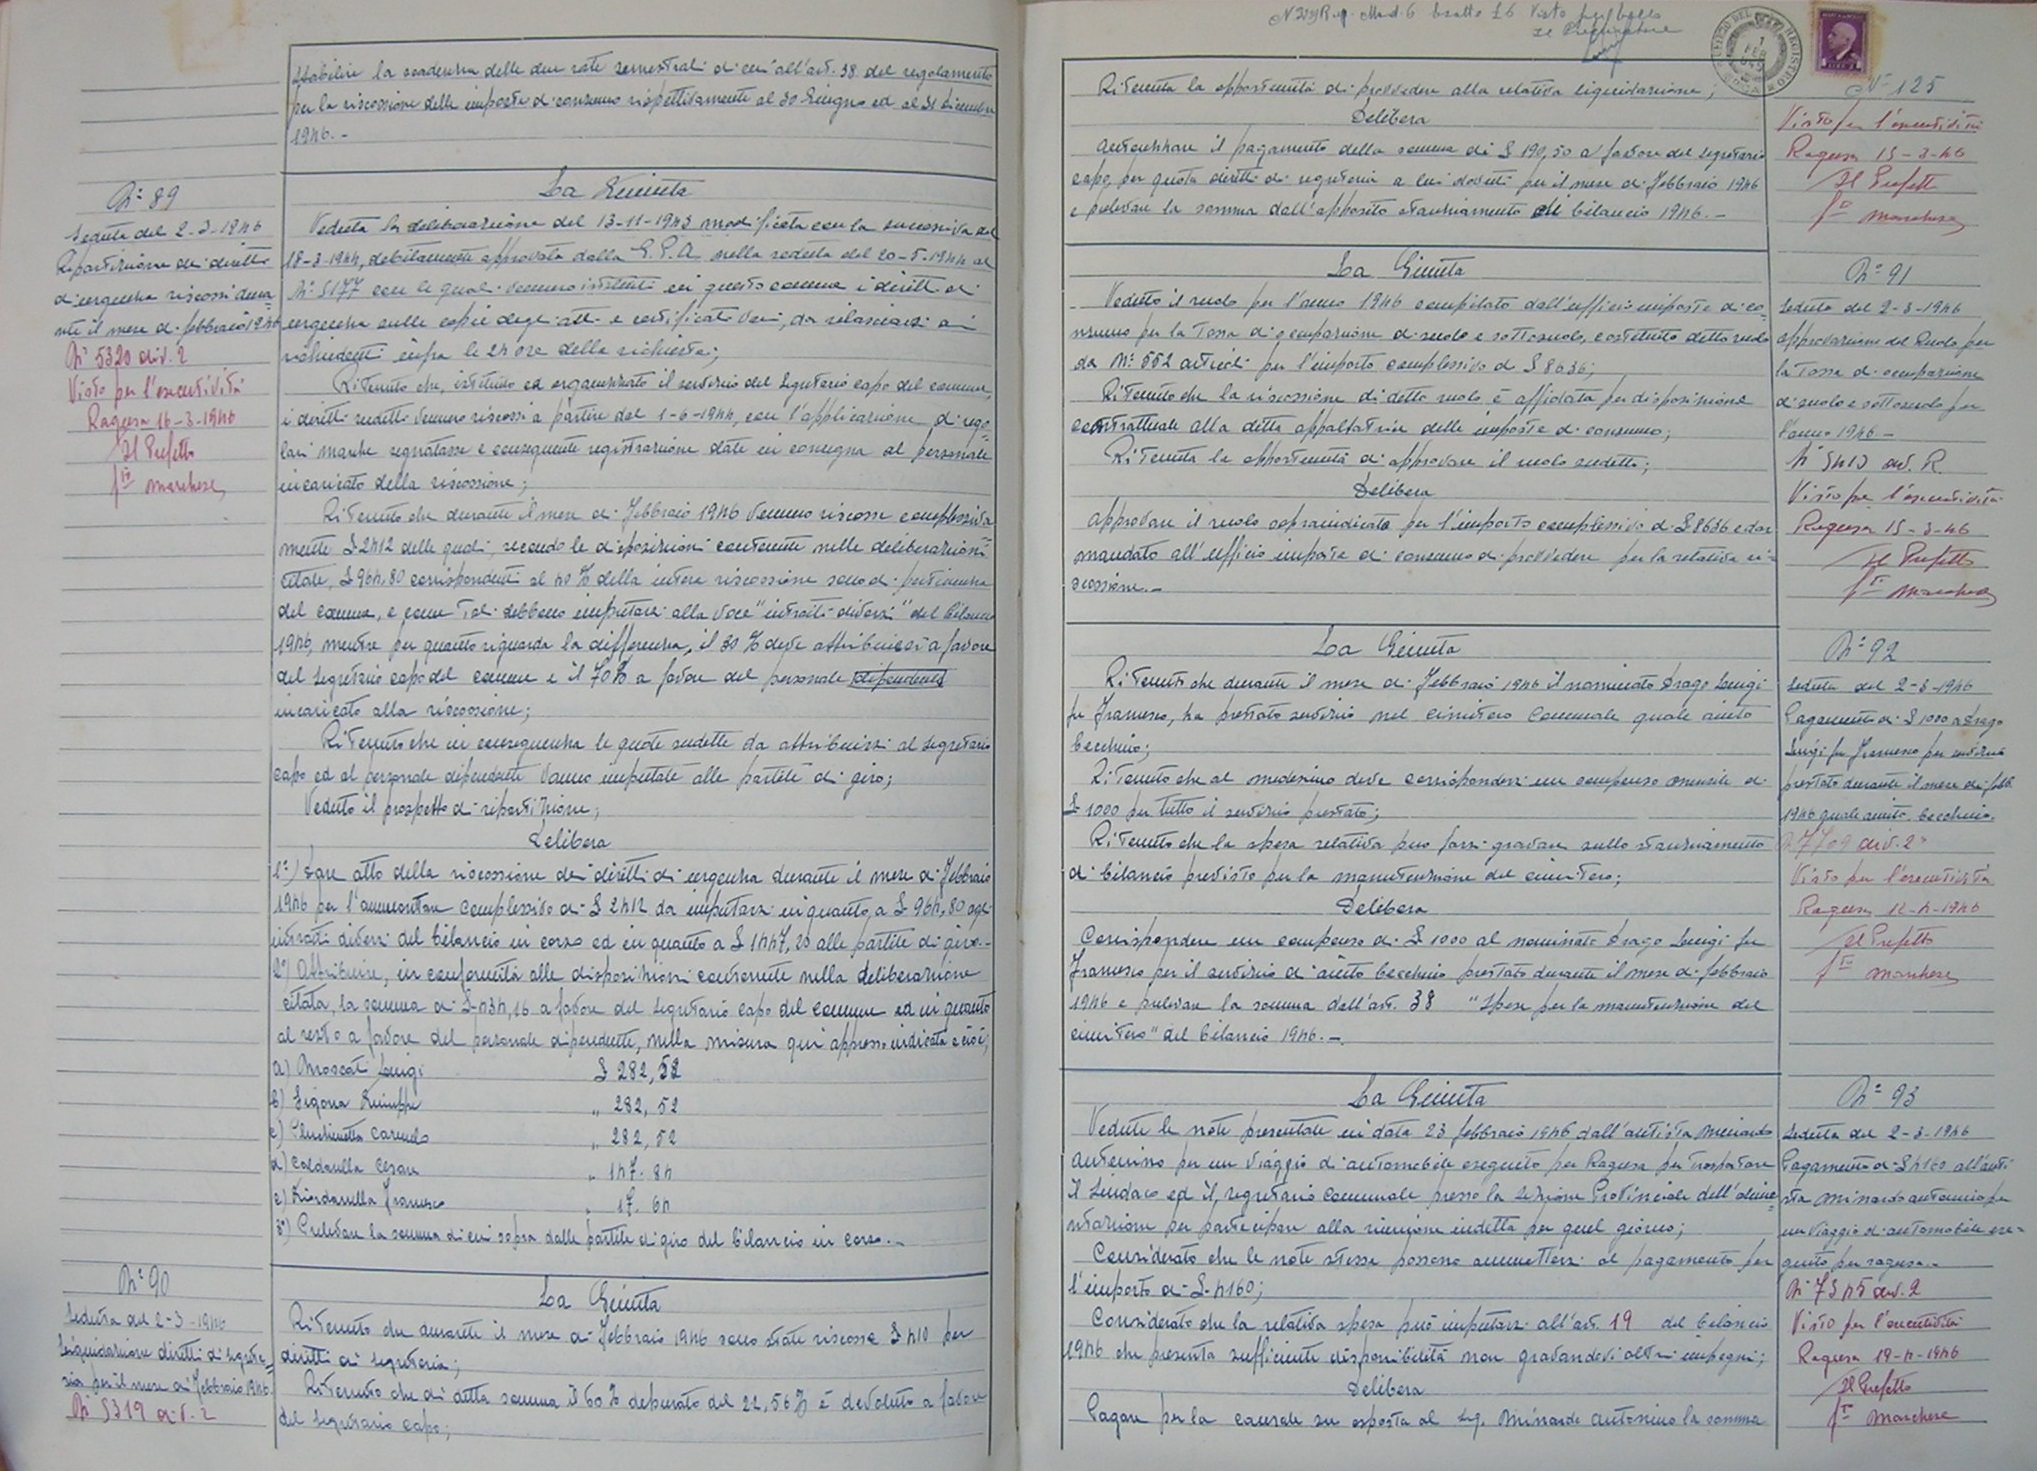 stabilire la scadenza delle due rate semestrali di cui all'art. 38 del regolamento
per la riscossione delle imposte di consumo rispettivamente al 30 Giugno ed al 31 Dicembre
1946.-
N° 89
Seduta del 2-3-1946
Ripartizione dei diritti
d'urgenza riscossi duran
te il mese di febbraio 1946
N° 5320 div. 2
Visto per l'esecutività
Ragusa 16-3-1946
Il Prefetto
fto Marchese
La Giunta
Veduta la deliberazione del 13-11-1943 modificata con la successiva del
18-3-1944, debitamente approvata dalla G.P.A. nella seduta del 20-5-1944 al
N° 5177 con le quali vennero istituiti in questo comune i diritti di
urgenza sulle copie degli atti e certificati vari, da rilasciarsi ai
richiedenti infra le 24 ore della richiesta;
Ritenuto che, istituito ed organizzato il servizio del Segretario capo del comune,
i diritti suddetti vennero riscossi a partire dal 1-6-1944, con l'applicazione di rego=
lari marche segnatasse e conseguente registrazione date in consegna al personale
incaricato della riscossione;
Ritenuto che durante il mese di Febbraio 1946 vennero riscosse complessiva
mente £ 2412 delle quali, secondo le disposizioni contenute nelle deliberazioni
citate, £ 964,80 corrispondenti al 40% della intera riscossione sono di pertinenza
del comune, e come tali debbono imputarsi alla voce "introiti diversi" del bilancio
1946, mentre per quanto riguarda la differenza, il 30% deve attribuirsi a favore
del Segretario capo del comune e il 70% a favore del personale dipendente
incaricato alla riscossione;
Ritenuto che in conseguenza le quote suddette da attribuirsi al Segretario
capo ed al personale dipendente vanno imputate alle partite di giro;
Veduto il prospetto di ripartizione;
Delibera
1°) Dare atto della riscossione dei diritti di urgenza durante il mese di Febbraio
1946 per l'ammontare complessivo di £ 2412 da imputarsi in quanto a £ 964,80 agli
introiti diversi del bilancio in corso ed in quanto a £ 1447,20 alle partite di giro.-
2°) Attribuire, in conformità alle disposizioni contenute nella deliberazione
citata, la somma di £ 434,16 a favore del Segretario capo del comune ed in quanto
al resto a favore del personale dipendente, nella misura qui appresso indicata e cioè;
a) Moscato Luigi £ 282,52
b) Ligona Giuseppe „ 282,52
c) Pluchinotta Carmelo „ 282,52
d) Caldarella Cesare „ 147.84
e) Giordanella Francesco „ 17.64
3°) Prelevare la somma di cui sopra dalle partite di giro del bilancio in corso.-
N° 90
Seduta del 2-3-1946
Liquidazione diritti di segrete=
ria per il mese di Febbraio 1946
N° 5319 div. 2
La Giunta
Ritenuto che durante il mese di Febbraio 1946 sono state riscosse £ 410 per
diritti di segreteria;
Ritenuto che di detta somma il 60% depurato del 22,56% è devoluto a favore
del segretario capo;
Visto per bollo
Il Procuratore
N° 125
Ritenuta la opportunità di provvedere alla relativa liquidazione;
Delibera
Autorizzare il pagamento della somma di £ 190,50 a favore del segretario
capo, per quota diritti di segreteria a lui dovuti per il mese di Febbraio 1946
e prelevare la somma dall'apposito stanziamento di bilancio 1946.-
Visto per l'esecutività
Ragusa 15-3-46
Il Prefetto
fto Marchese
La Giunta
Veduto il ruolo per l'anno 1946 compilato dall'ufficio imposte di co=
nsumo per la Tassa di occupazione di suolo e sottosuolo, costituito detto ruolo
da N° 552 articoli per l'importo complessivo di £ 8636;
Ritenuto che la riscossione di detto ruolo è affidata per disposizione
contrattuale alla ditta appaltatrice delle imposte di consumo;
Ritenuta la opportunità di approvare il ruolo suddetto;
Delibera
approvare il ruolo sopraindicato per l'importo complessivo di £ 8636 e dar
mandato all'ufficio imposte di consumo di provvedere per la relativa ri=
scossione.-
N° 91
Seduta del 2-3-1946
approvazione del Ruolo per
la Tassa di occupazione
di suolo e sottosuolo per
l'anno 1946-
N° 5413 div. R.
Visto per l'esecutività
Ragusa 15-3-46
Il Prefetto
fto Marchese
La Giunta
Ritenuto che durante il mese di Febbraio 1946 il nominato Drago Luigi
fu Francesco, ha prestato servizio nel cimitero Comunale quale aiuto
becchino;
Ritenuto che al medesimo deve corrispondersi un compenso mensile di
£ 1000 per tutto il servizio prestato;
Ritenuto che la spesa relativa può farsi gravare sullo stanziamento
di bilancio previsto per la manutenzione del cimitero;
Delibera
Corrispondere un compenso di £ 1000 al nominato Drago Luigi fu
Francesco per il servizio di aiuto becchino prestato durante il mese di febbraio
1946 e prelevare la somma dall'art. 38 "Spese per la manutenzione del
cimitero" del bilancio 1946.-
N° 92
Seduta del 2-3-1946
Pagamento di £ 1000 a Drago
Luigi fu Francesco per servizio
prestato durante il mese di febb.
1946 quale aiuto becchino.
N. 7709 div. 2°
Visto per l'esecutività
Ragusa 12-4-1946
Il Prefetto
fto Marchese
La Giunta
Vedute le note presentate in data 23 febbraio 1946 dall'autista Minardo
Antonino per un viaggio di automobile eseguito per Ragusa per trasportare
il Sindaco ed il segretario Comunale presso la Sezione Provinciale dell'alime=
ntazione per partecipare alla riunione indetta per quel giorno;
Considerato che le note stesse possono ammettersi al pagamento per
l'importo di £ 4160;
Considerato che la relativa spesa può imputarsi all'art. 19 del bilancio
1946 che presenta sufficiente disponibilità non gravandovi altri impegni;
Delibera
Pagare per la causale su esposta al Sig. Minardo Antonino la somma
N° 93
Seduta del 2-3-1946
Pagamento di £ 4160 all'auti
sta Minardo Antonino per
un viaggio di automobile ese=
guito per Ragusa.-
N° 7345 div. 2
Visto per l'esecutività
Ragusa 18-4-1946
Il Prefetto
fto Marchese